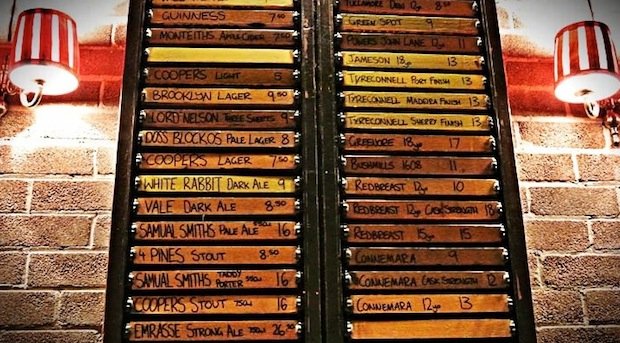 GUINNESS 7.50
MONTEITHS APPLE CIDER 7.50
COOPERS LIGHT 5
BROOKLYN LAGER 9.50
LORD NELSON THREE SHEETS 9
DOSS BLOCKOS PALE LAGER 8
COOPERS LAGER 7.50
WHITE RABBIT DARK ALE 9
VALE DARK ALE 8.50
SAMUAL SMITHS PALE ALE 16
4 PINES STOUT 8.50
SAMUAL SMITHS TADDY PORTER 16
COOPERS STOUT 750ml 16
EMRASSE STRONG ALE 750ml 26.50
TULLAMORE DEW
GREEN SPOT 9
POWERS JOHN LANE 12yo 11
JAMESON 18yo 13
TYRECONNELL PORT FINISH 13
TYRECONNELL MADEIRA FINISH 13
TYRECONNELL SHERRY FINISH 13
GREENORE 18yo 17
BUSHMILLS 1608 11
REDBREAST 12yo 10
REDBREAST 12yo CASK STRENGTH 18
REDBREAST 15yo 15
CONNEMARA 9
CONNEMARA CASK STRENGTH 12
CONNEMARA 12yo 13